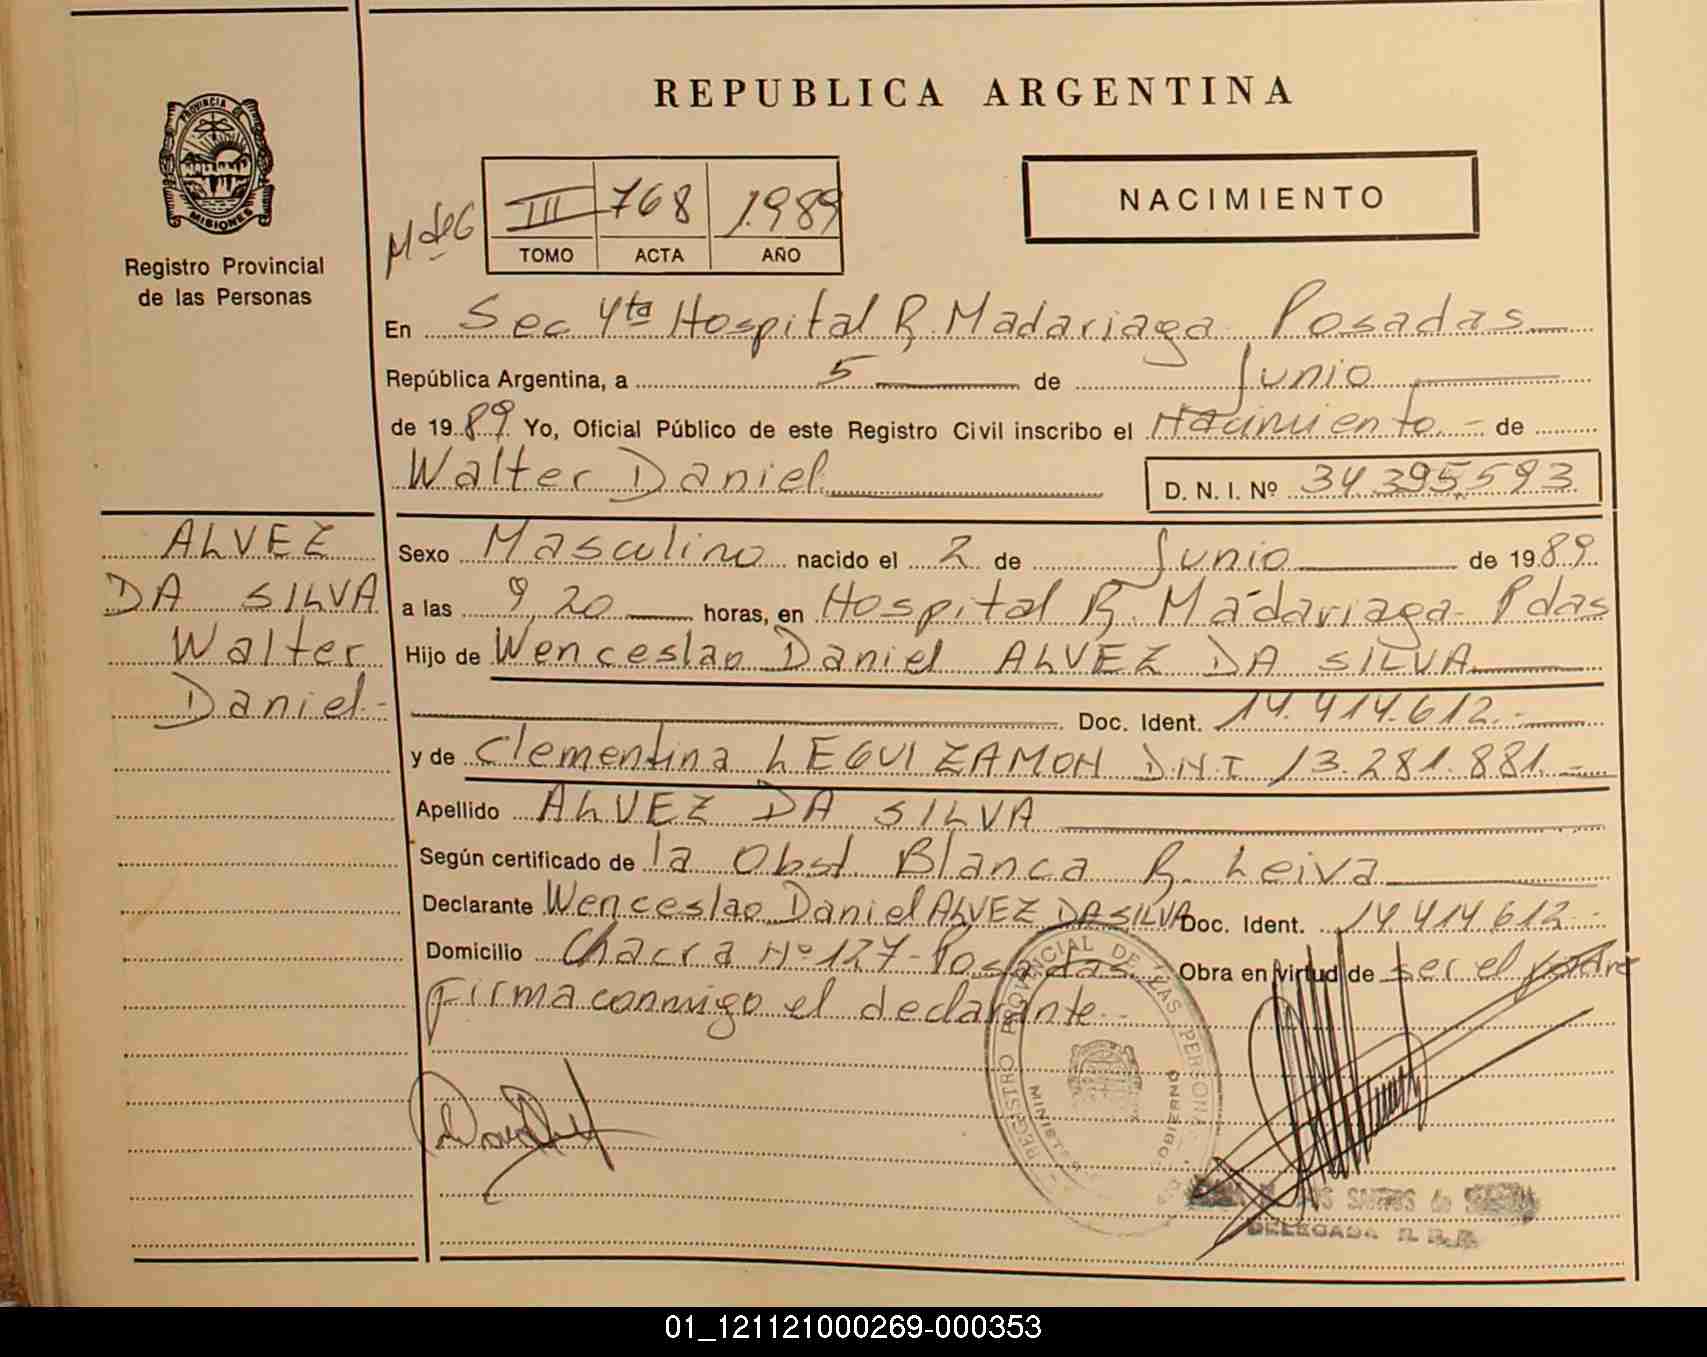 REPUBLICA ARGENTINA
PROVINCIA DE
MISIONES
Registro Provincial
de las Personas
M de G
III 768 1.989
TOMO ACTA AÑO
NACIMIENTO
En Sec 4ta Hospital R. Madariaga Posadas
República Argentina, a 5 de Junio
de 1989 Yo, Oficial Público de este Registro Civil inscribo el Nacimiento.- de
Walter Daniel D. N. I. Nº 34 395.593
ALVEZ
DA SILVA
Walter
Daniel.-
Sexo Masculino nacido el 2 de Junio de 1989
a las 9,20 horas, en Hospital R. Madariaga- Pdas
Hijo de Wenceslao Daniel ALVEZ DA SILVA
Doc. Ident. 14.414.612.-
y de Clementina LEGUIZAMON DNI 13.281.881.-
Apellido ALVEZ DA SILVA
Según certificado de la Obst Blanca R. Leiva
Declarante Wenceslao Daniel ALVEZ DA SILVA Doc. Ident. 14.414.612.-
Domicilio Chacra Nº 127-Posadas. Obra en virtud de ser el padre
Firma conmigo el declarante.-
REGISTRO PROVINCIAL DE LAS PERSONAS
GOBIERNO
SANTOS de
DELEGADA
01_121121000269-000353